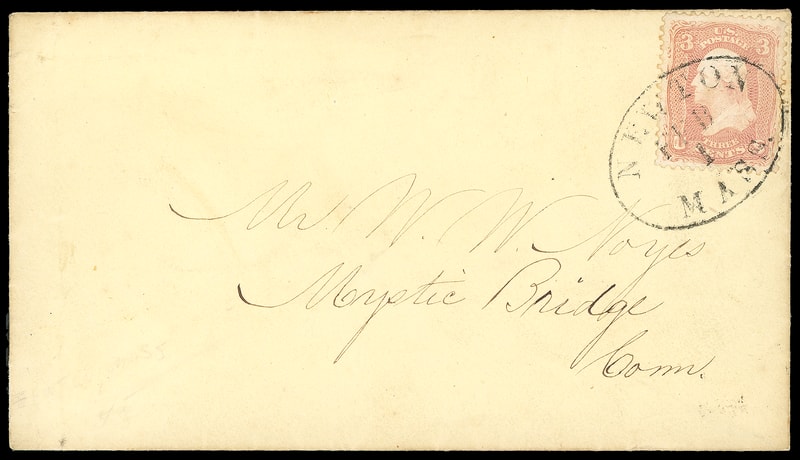 3 U.S. 3
POSTAGE
THREE
CENTS
MASS.
Mr. W. W. Noyes
Mystic Bridge
Conn.